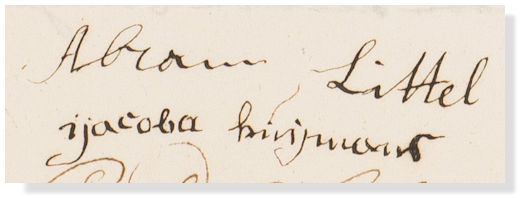 Abram Littel
ijacoba huijmans